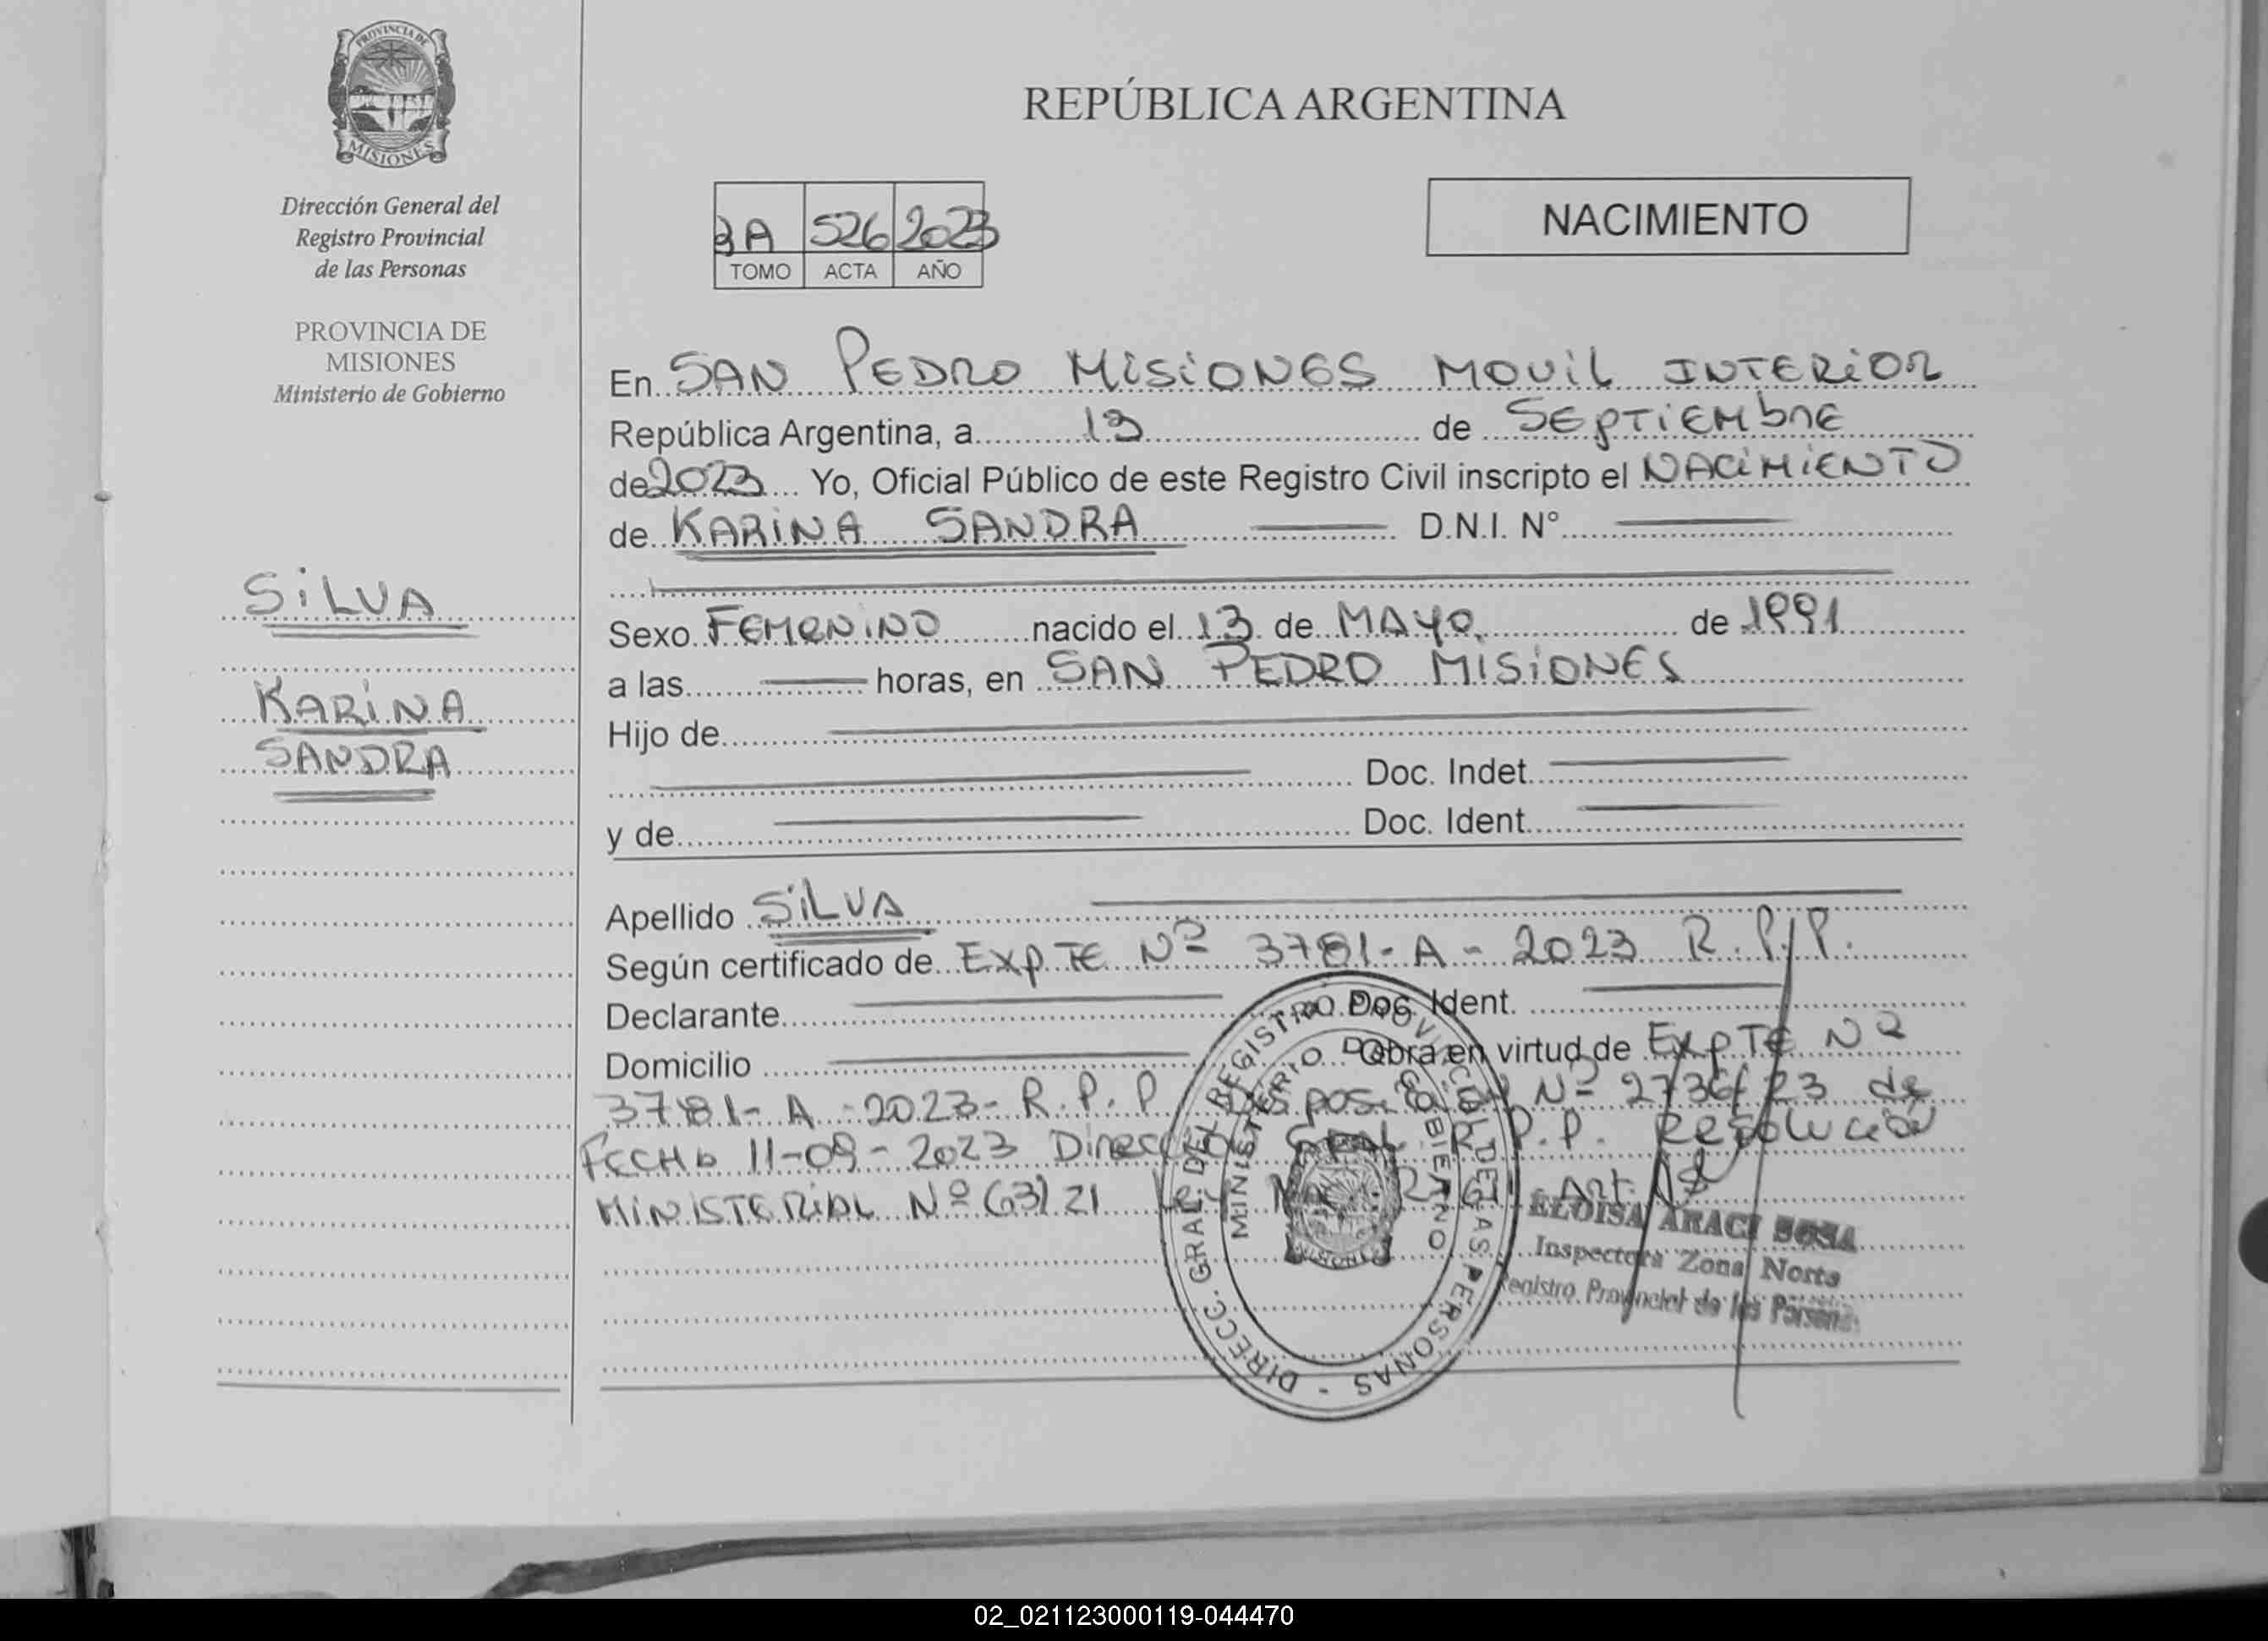 PROVINCIA DE
MISIONES
Dirección General del
Registro Provincial
de las Personas
PROVINCIA DE
MISIONES
Ministerio de Gobierno
SILVA
KARINA
SANDRA
REPÚBLICA ARGENTINA
3A 526 2023
TOMO ACTA AÑO
NACIMIENTO
En SAN PEDRO MISIONES MOVIL INTERIOR
República Argentina, a 13 de SEPTIEMBRE
de 2023 Yo, Oficial Público de este Registro Civil inscripto el NACIMIENTO
de KARINA SANDRA D.N.I. N°
Sexo FEMENINO nacido el 13 de MAYO de 1991
a las horas, en SAN PEDRO MISIONES
Hijo de
Doc. Indet.
y de Doc. Ident.
Apellido SILVA
Según certificado de EXPTE Nº 3781-A-2023 R.P.P.
Declarante Doc. Ident.
Domicilio Obra en virtud de EXPTE Nº
3781-A-2023-R.P.P. Disposición Nº 2736/23 de
FECHA 11-09-2023 Dirección GRAL R.P.P. Resolución
MINISTERIAL Nº 63/21 Art.
DIRECC. GRAL. DEL REGISTRO PROVINCIAL DE LAS PERSONAS -
MINISTERIO DE GOBIERNO
MISIONES
ELOISA ARACI SOSA
Inspectora Zona Norte
Registro Provincial de las Personas
02_021123000119-044470